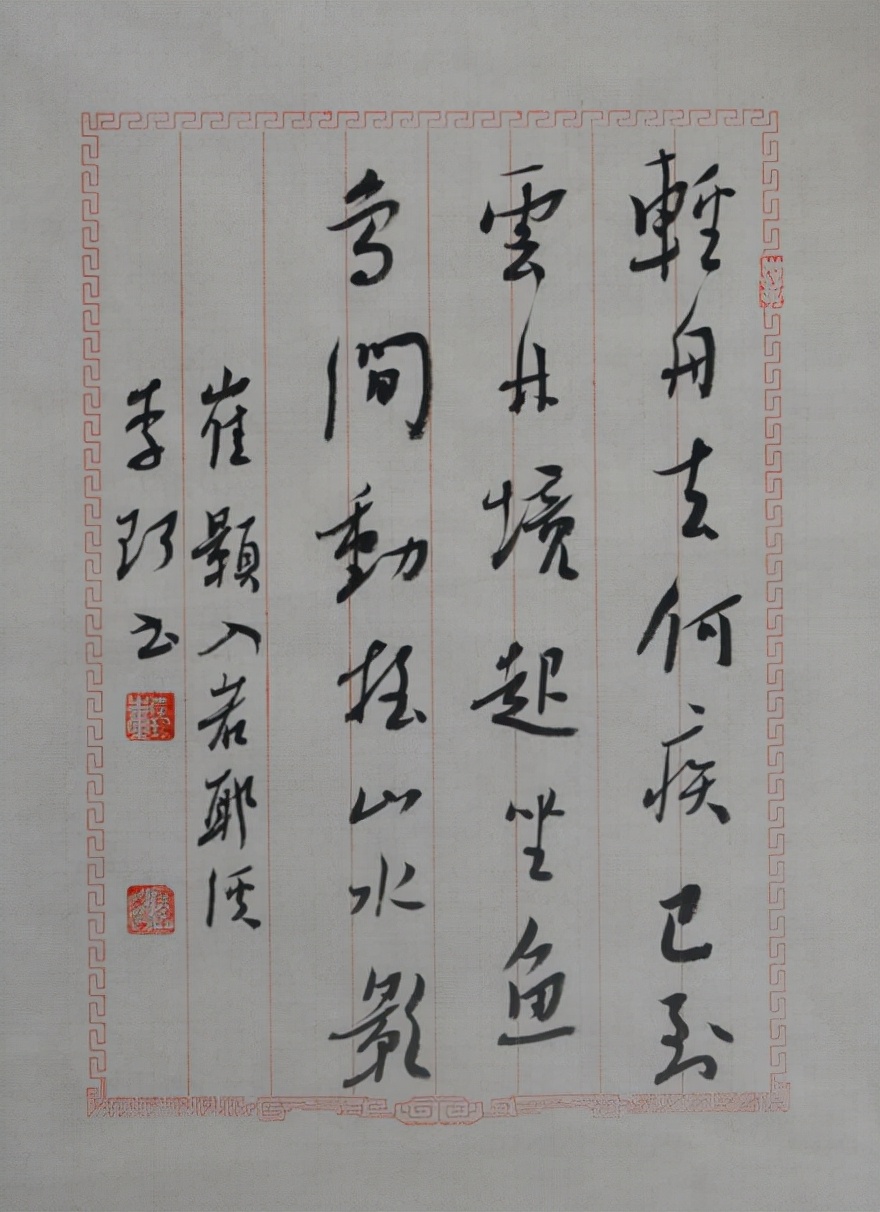 輕舟去何疾已到
雲林境起坐魚
鳥間動搖山水影
崔顥入若耶溪
李书